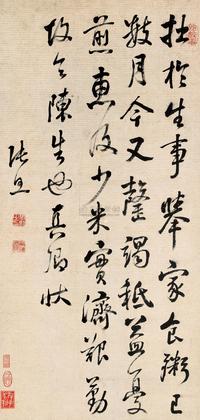 拙於生事舉家食粥已
數月今又罄竭秪益憂
煎惠及少米實濟艱勤
故令陳生也真卿狀